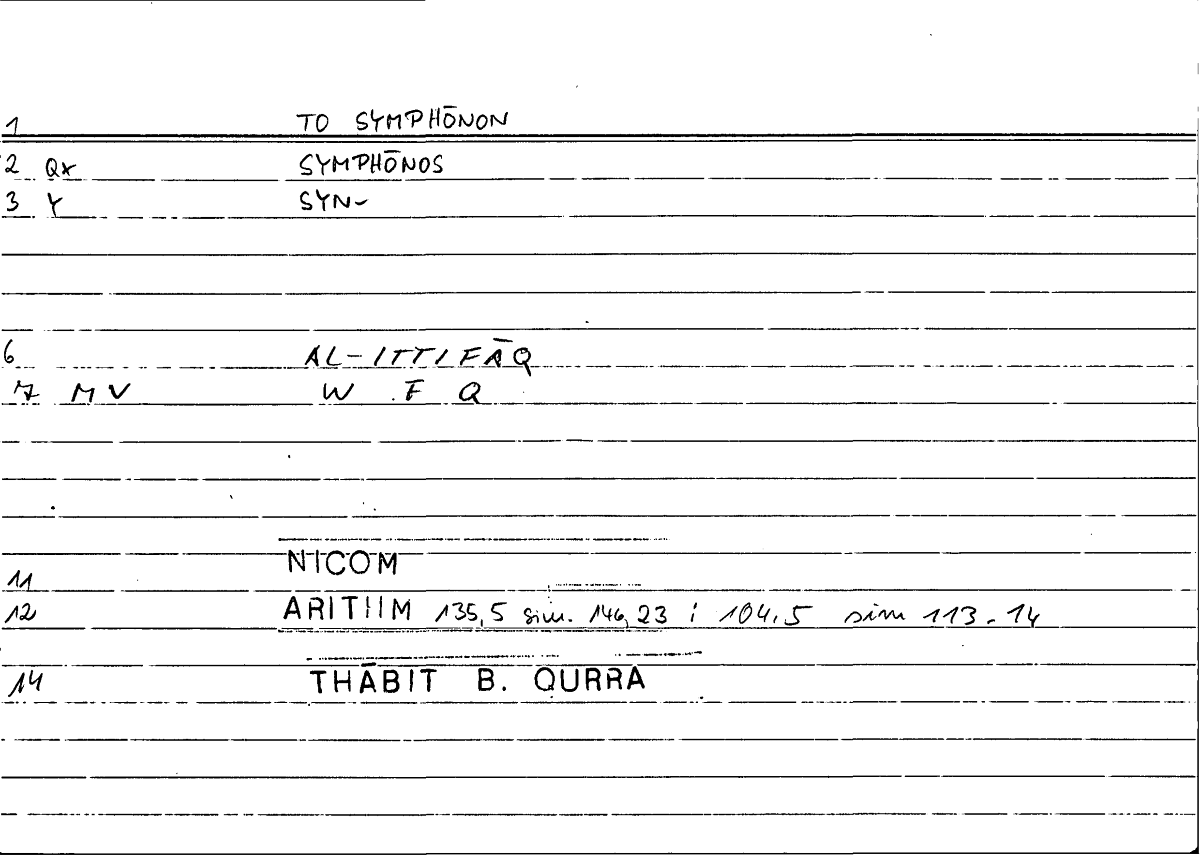 1 TO SYMPHŌNON
2 Qx SYMPHŌNOS
3 Y SYN-
6 AL-ITTIFĀQ
7 MV W F Q
11 NICOM
12 ARITHM 135,5 sim. 146,23 ; 104,5 sim 113.14
14 THĀBIT B. QURRA